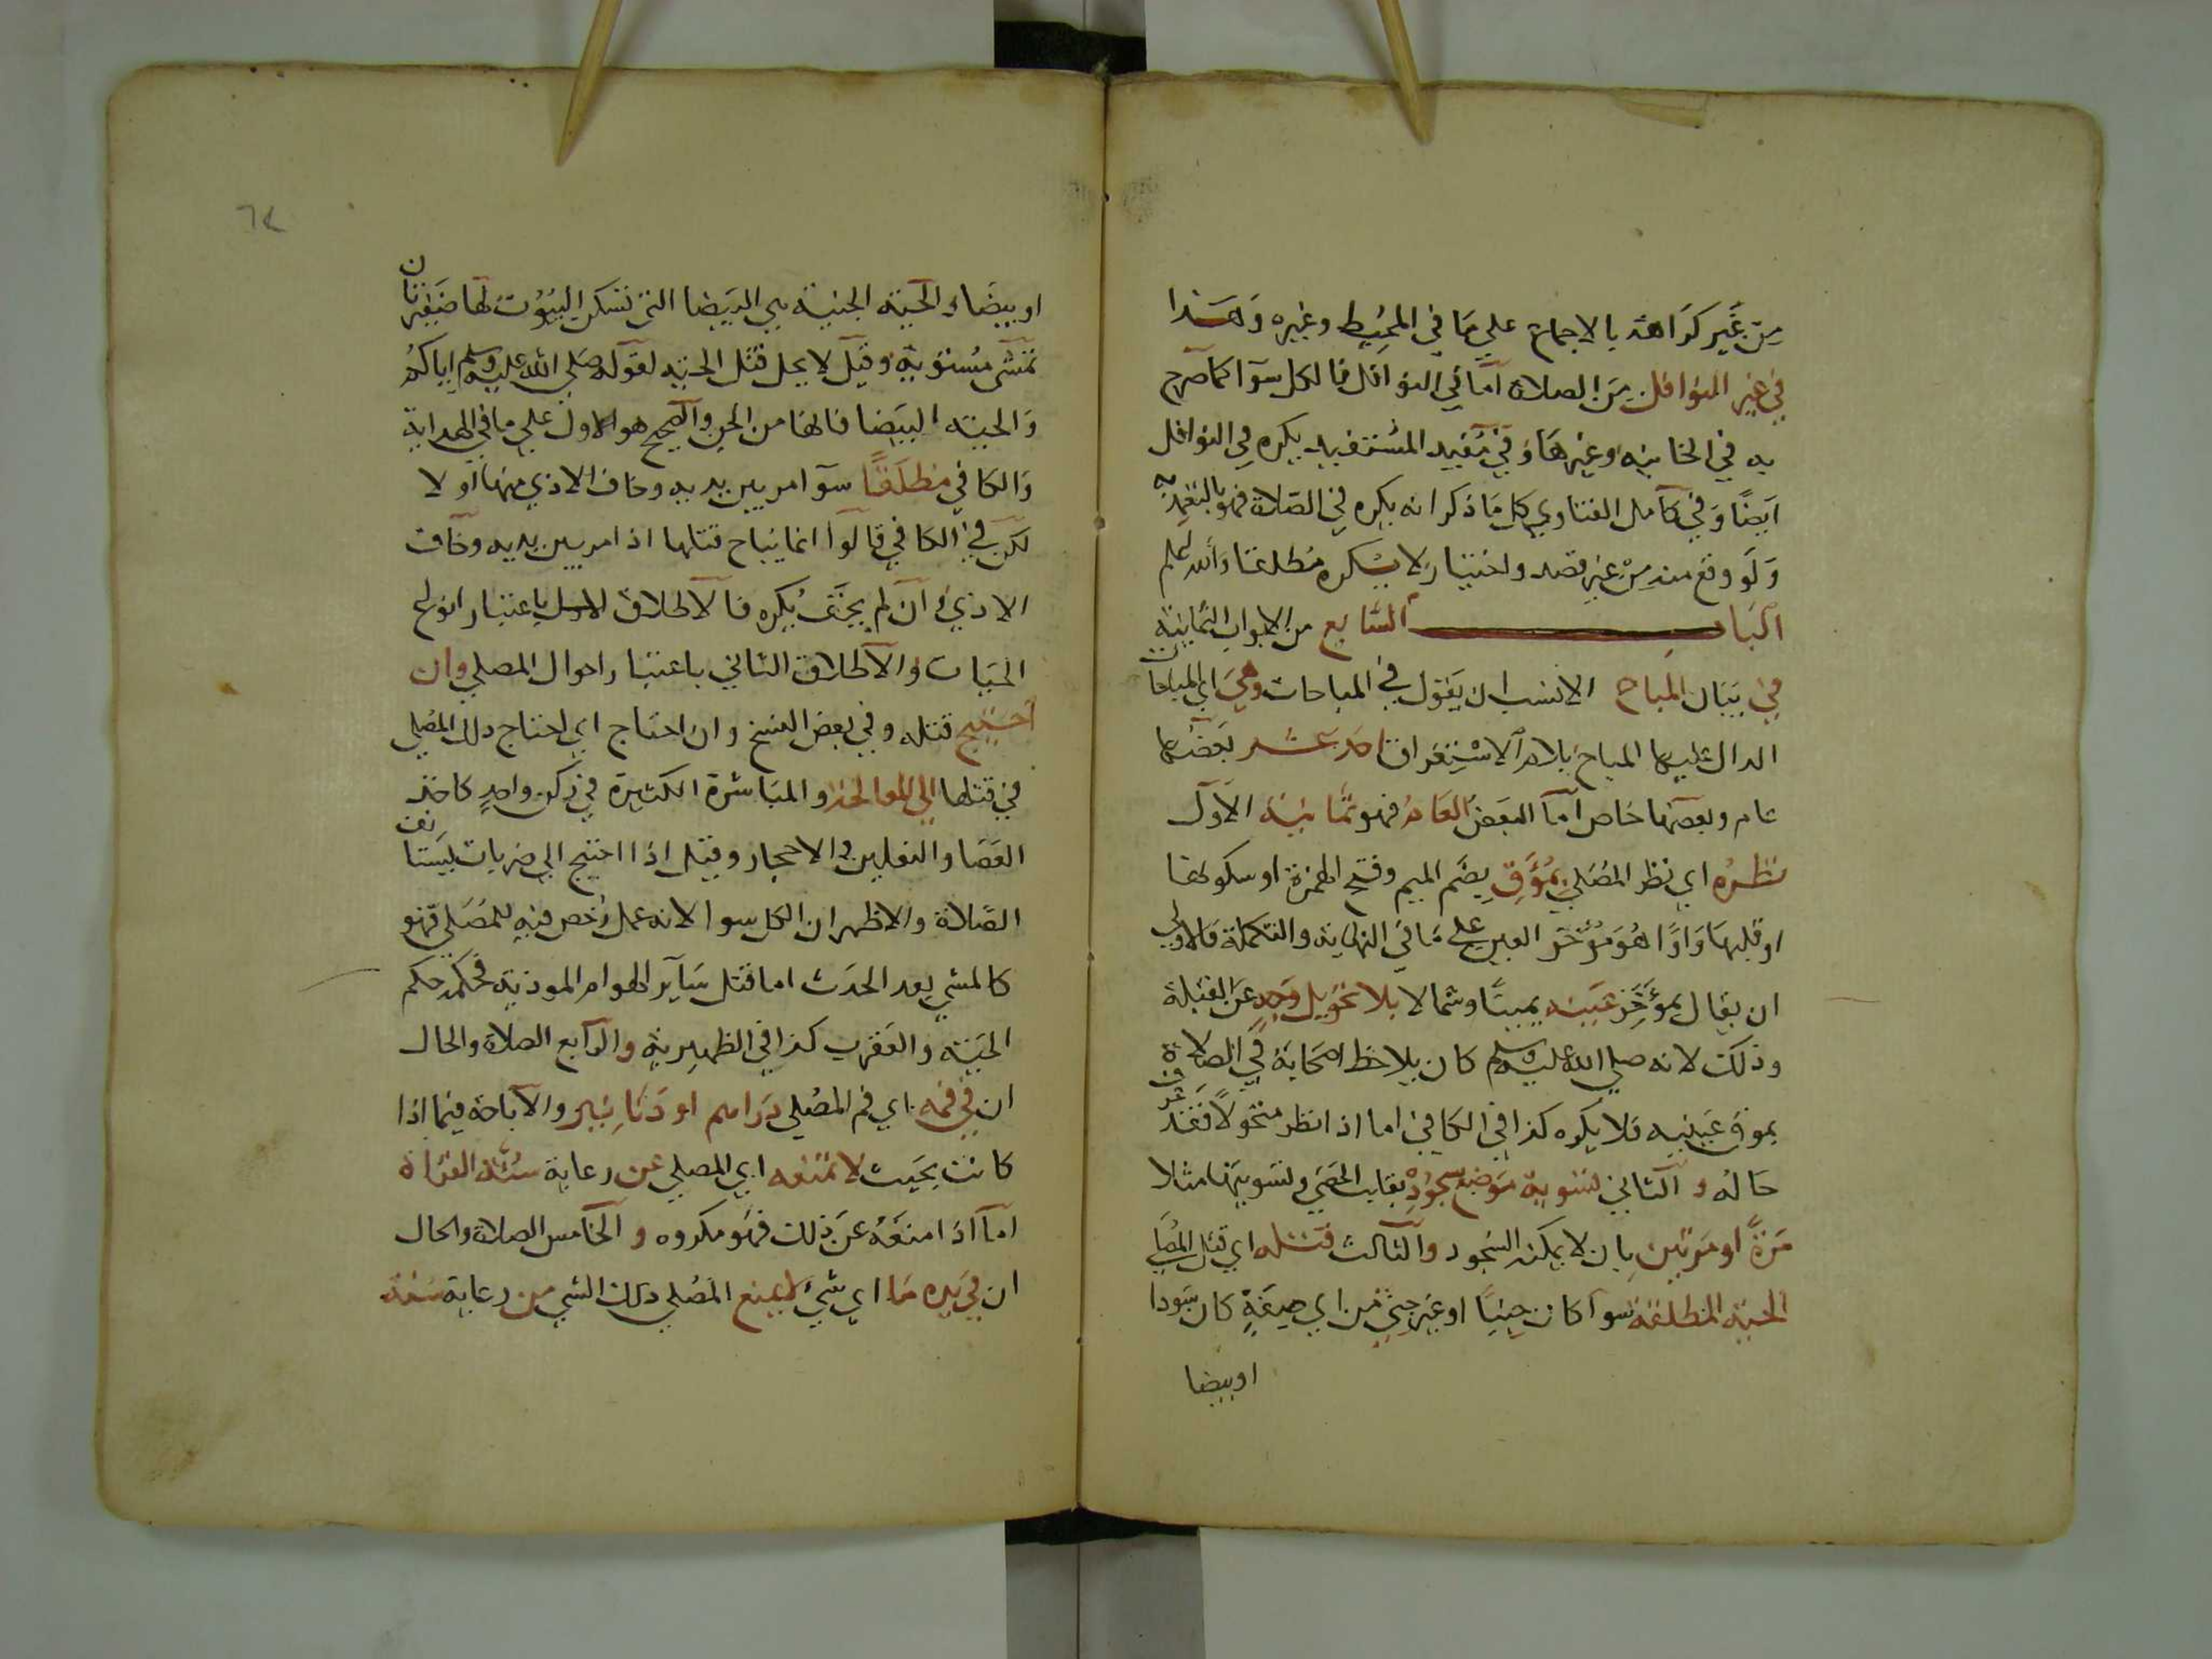 من غير كراهة بالاجماع علي ما في المحيط وغيره وهذا
في غير النوافل من الصلاة اما في النوافل فالكل سوآ كما صرح
به في الخانيه وغيرها وفي مفيد المستفيد يكره في النوافل
ايضًا وفي كامل الفتاوي كل ما ذكر انه يكره في الصلاة فهو بالتعمد
ولو وقع منه من غير قصد واختيار لا يكره مطلقا والله اعلم
الباب السابع من الابواب الثمانية
في بيان المباح الانسب ان يقول في المباحات وهي اي المباحات
الدال عليها المباح بلام الاستغراق احد عشر بعضها
عام وبعضها خاص اما البعض العام فهو ثمانية الاول
نظره اي نظر المصلي بمؤق بضم الميم وفتح الهمزة او سكونها
او قلبها واوًا هو مؤخر العين علي ما في النهاية والتكملة فالاولي
ان يقال بمؤخر عينيه يمينًا وشمالا بلا تحويل وجه عن القبلة
وذلك لانه صلي الله عليه وسلم كان يلاحظ اصحابه في الصلاة
بموق عينيه فلا يكره كذا في الكافي اما اذا نظر متحولًا فقد عرفت
حاله والثاني تسوية موضع سجوده بقلب الحصي وتسويتها مثلا
مرةً او مرتين بان لا يمكنه السجود والثالث قتله اي قتل المصلي
الحية المطلقة سوآ كان جنيًا او غير جني من اي صيغةٍ كان سودا
اوبيضا
٦٢
او بيضاء والحية الجنية هي البيضا التي تسكن البيوت لها ضفيرتان
تمشي مستوية وقيل لا يحل قتل الحية لقوله صلي الله عليه وسلم اياكم
والحية البيضا فانها من الجن والصحيح هو الاول علي ما في الهداية
والكافي مطلقًا سوآ مر بين يديه وخاف الاذي منها او لا
لكن في الكافي قالوا انما يباح قتلها اذا مر بين يديه وخاف
الاذي وان لم يخف يكره فالاطلاق الاول باعتبار انواع
الحيات والاطلاق الثاني باعتبار احوال المصلي وان
احتيج قتله وفي بعض النسخ وان احتاج اي احتاج ذلك المصلي
في قتلها الي المعالجة والمباشرة الكثيرة في ركن واحد كاخذ
العصا والنعلين والاحجار وقيل اذا احتيج الي ضربات يستانف
الصلاة والاظهر ان الكل سوا لانه عمل رخص فيه للمصلي فهو
كالمشي بعد الحدث اما قتل سآير الهوام الموذية فحكمه حكم
الحية والعقرب كذا في الظهيرية والرابع الصلاة والحال
ان في فمه اي فم المصلي دراهم او دنانير والاباحة فيما اذا
كانت بحيث لا تمنعه اي المصلي عن رعاية سنة القراة
اما اذا منعه عن ذلك فهو مكروه والخامس الصلاة والحال
ان في يده ما اي شئ لا يمنع المصلي ذلك الشي من رعاية سنة